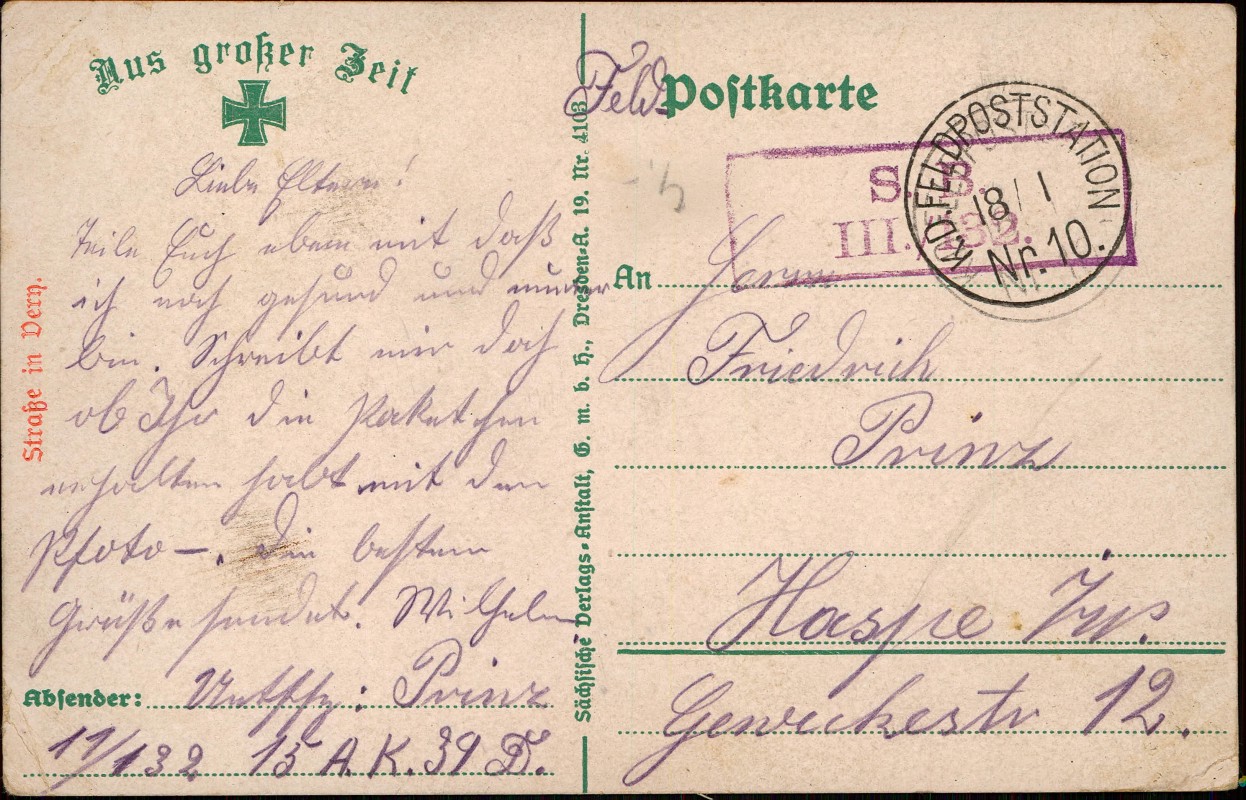 Aus großer Zeit
Liebe Eltern!
Teile Euch eben mit daß
ich noch gesund und munter
bin. Schreibt mir doch
ob Ihr die Paketchen
erhalten habt mit den
Pfoto —. Die besten
Grüße sendet. Wilhelm
Absender: Prinz
11/132 15 A. K. 39 D.
Straße in Very.
Sächsische Verlags-Anstalt, G. m. b. H., Dresden-A. 19. Nr. 4103
Feld Postkarte
S. B.
III./132.
K.D. FELDPOSTSTATION
18/1
Nr. 10.
An Herrn
Friedrich
Prinz
Haspe
Gewekestr 12.